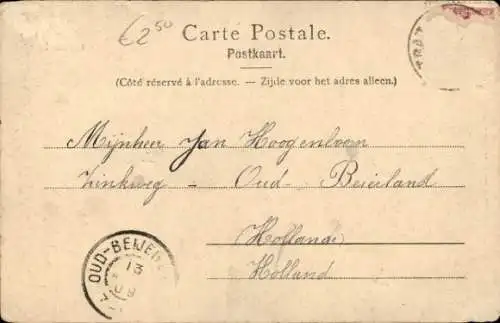 €2⁵⁰
Carte Postale.
Postkaart.
(Côté réservé à l'adresse. — Zijde voor het adres alleen.)
Mijnheer Jan Hoogenboom
Zinkweg – Oud-Beierland
(Holland)
Holland
OUD-BEIJER
13